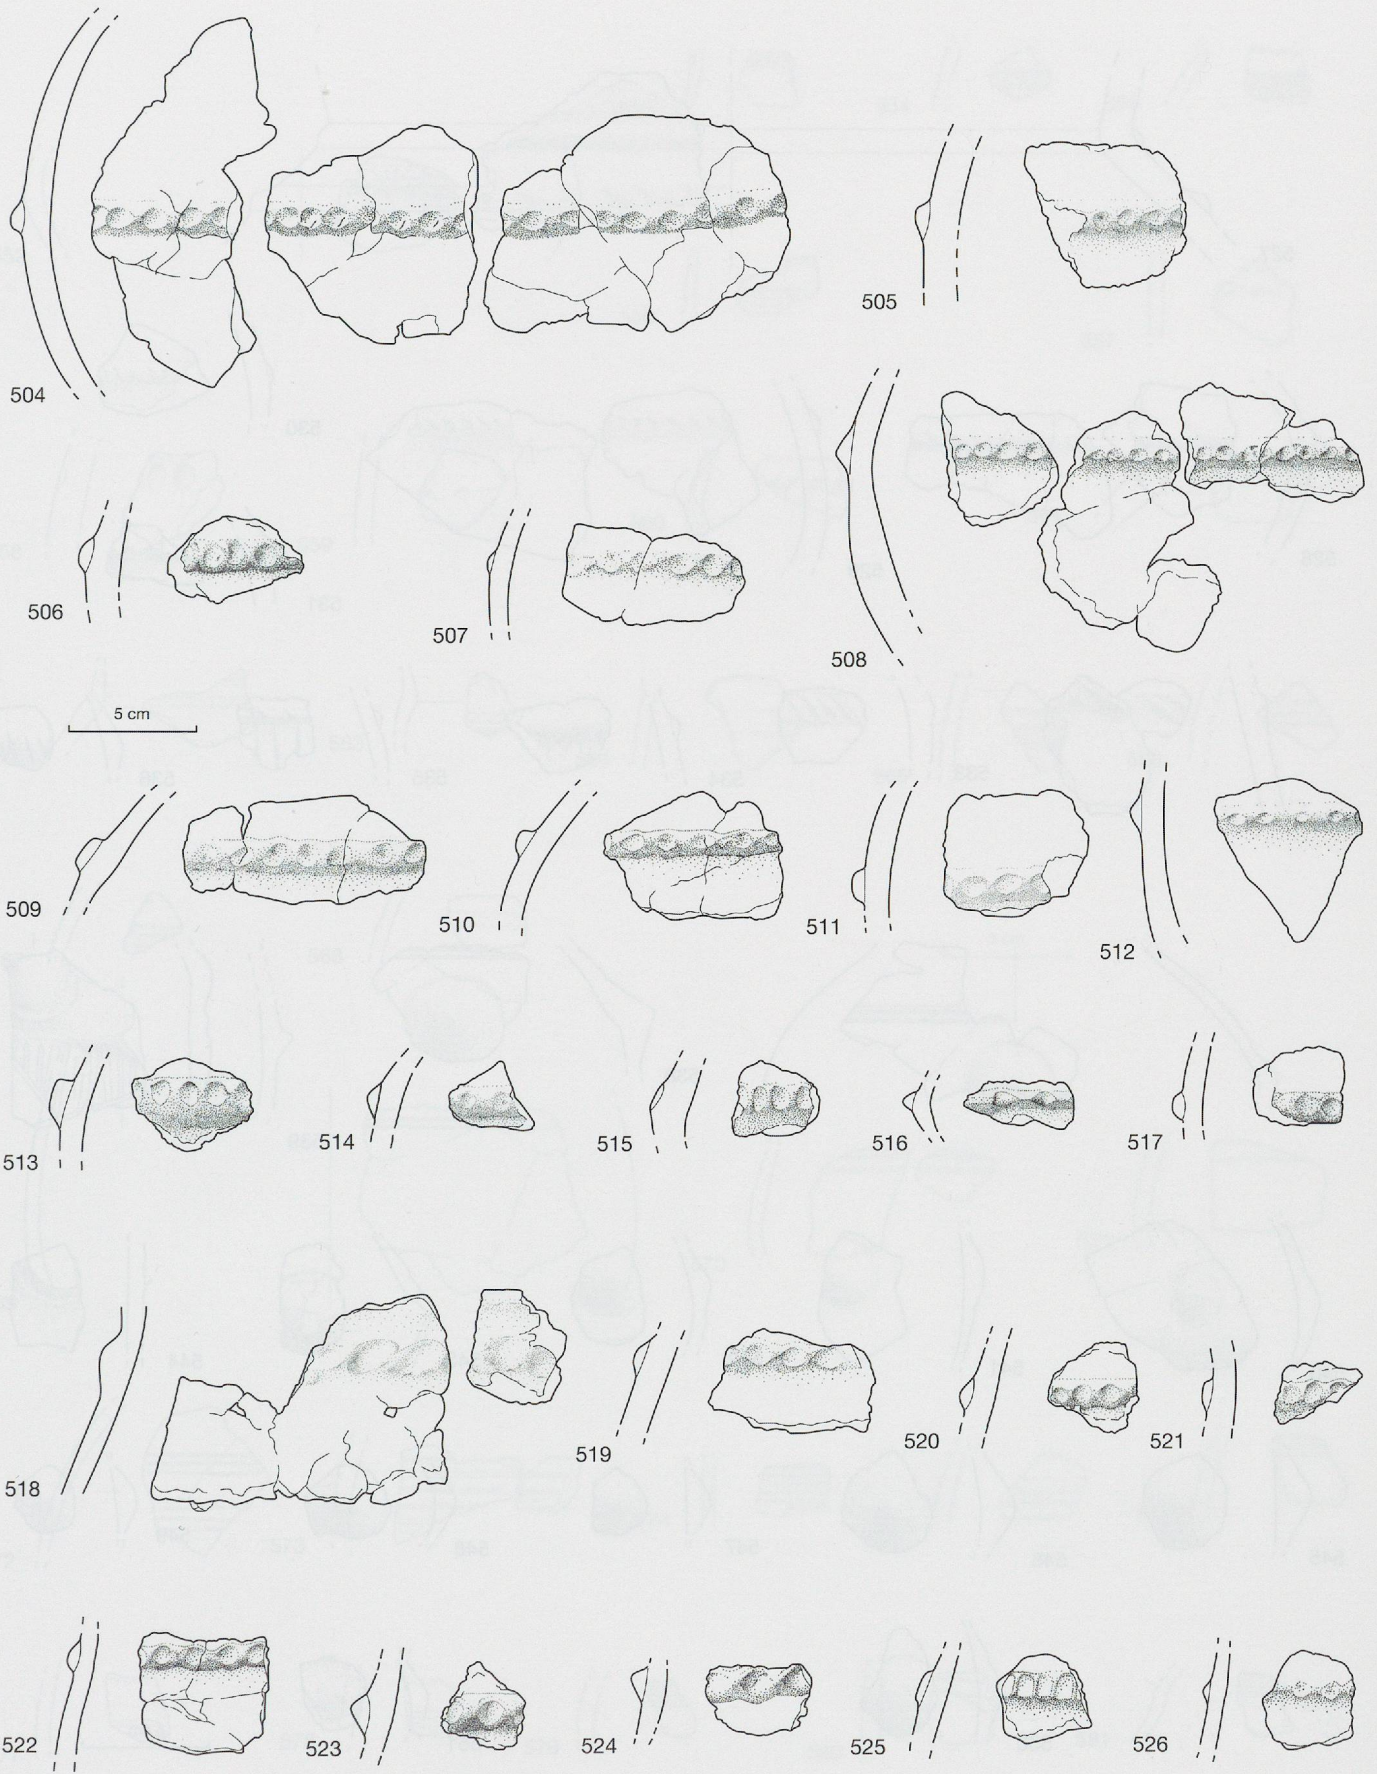 504
505
506
507
508
5 cm
509
510
511
512
513
514
515
516
517
518
519
520
521
522
523
524
525
526